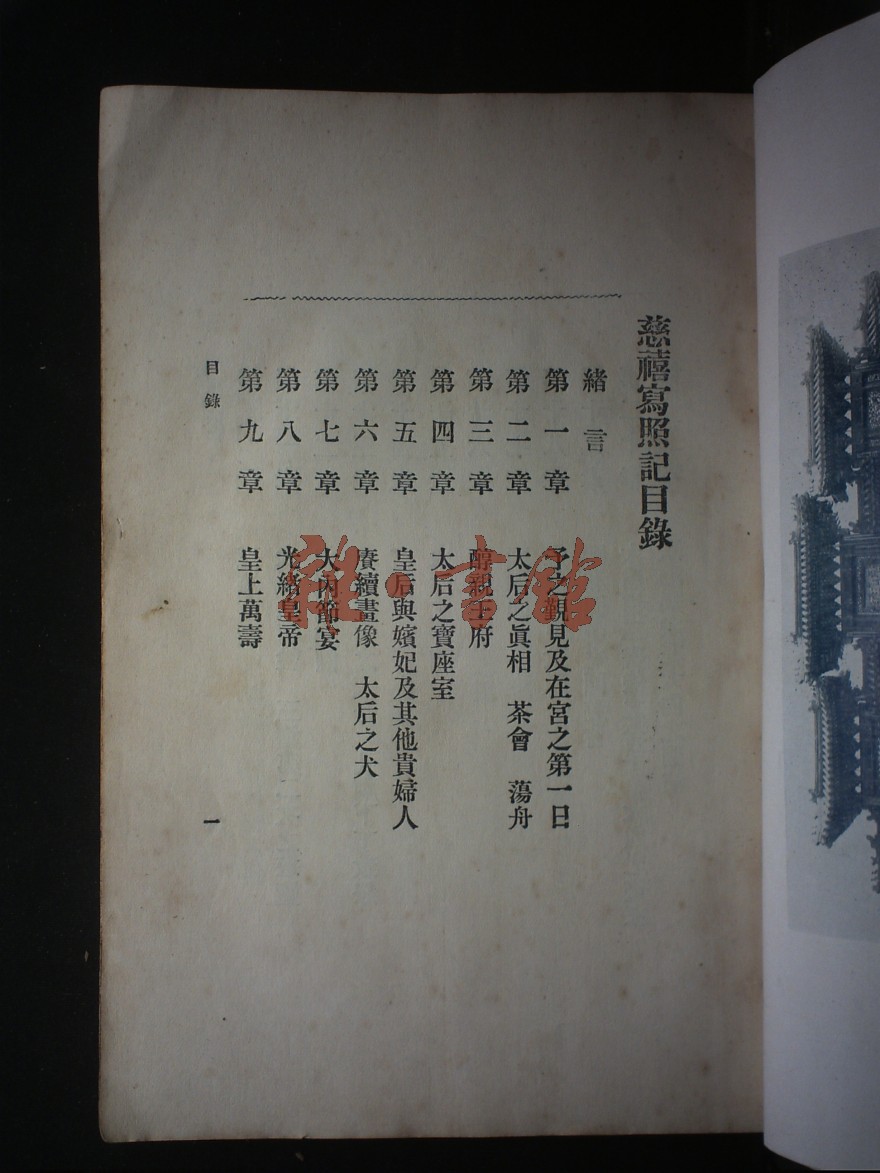 慈禧寫照記目錄
緒言
第一章 予之覲見及在宮之第一日
第二章 太后之眞相 茶會 蕩舟
第三章 醇親王府
第四章 太后之寶座室
第五章 皇后與嬪妃及其他貴婦人
第六章 賡續畫像 太后之犬
第七章 大內節宴
第八章 光緒皇帝
第九章 皇上萬壽
目錄
一
雜·書館